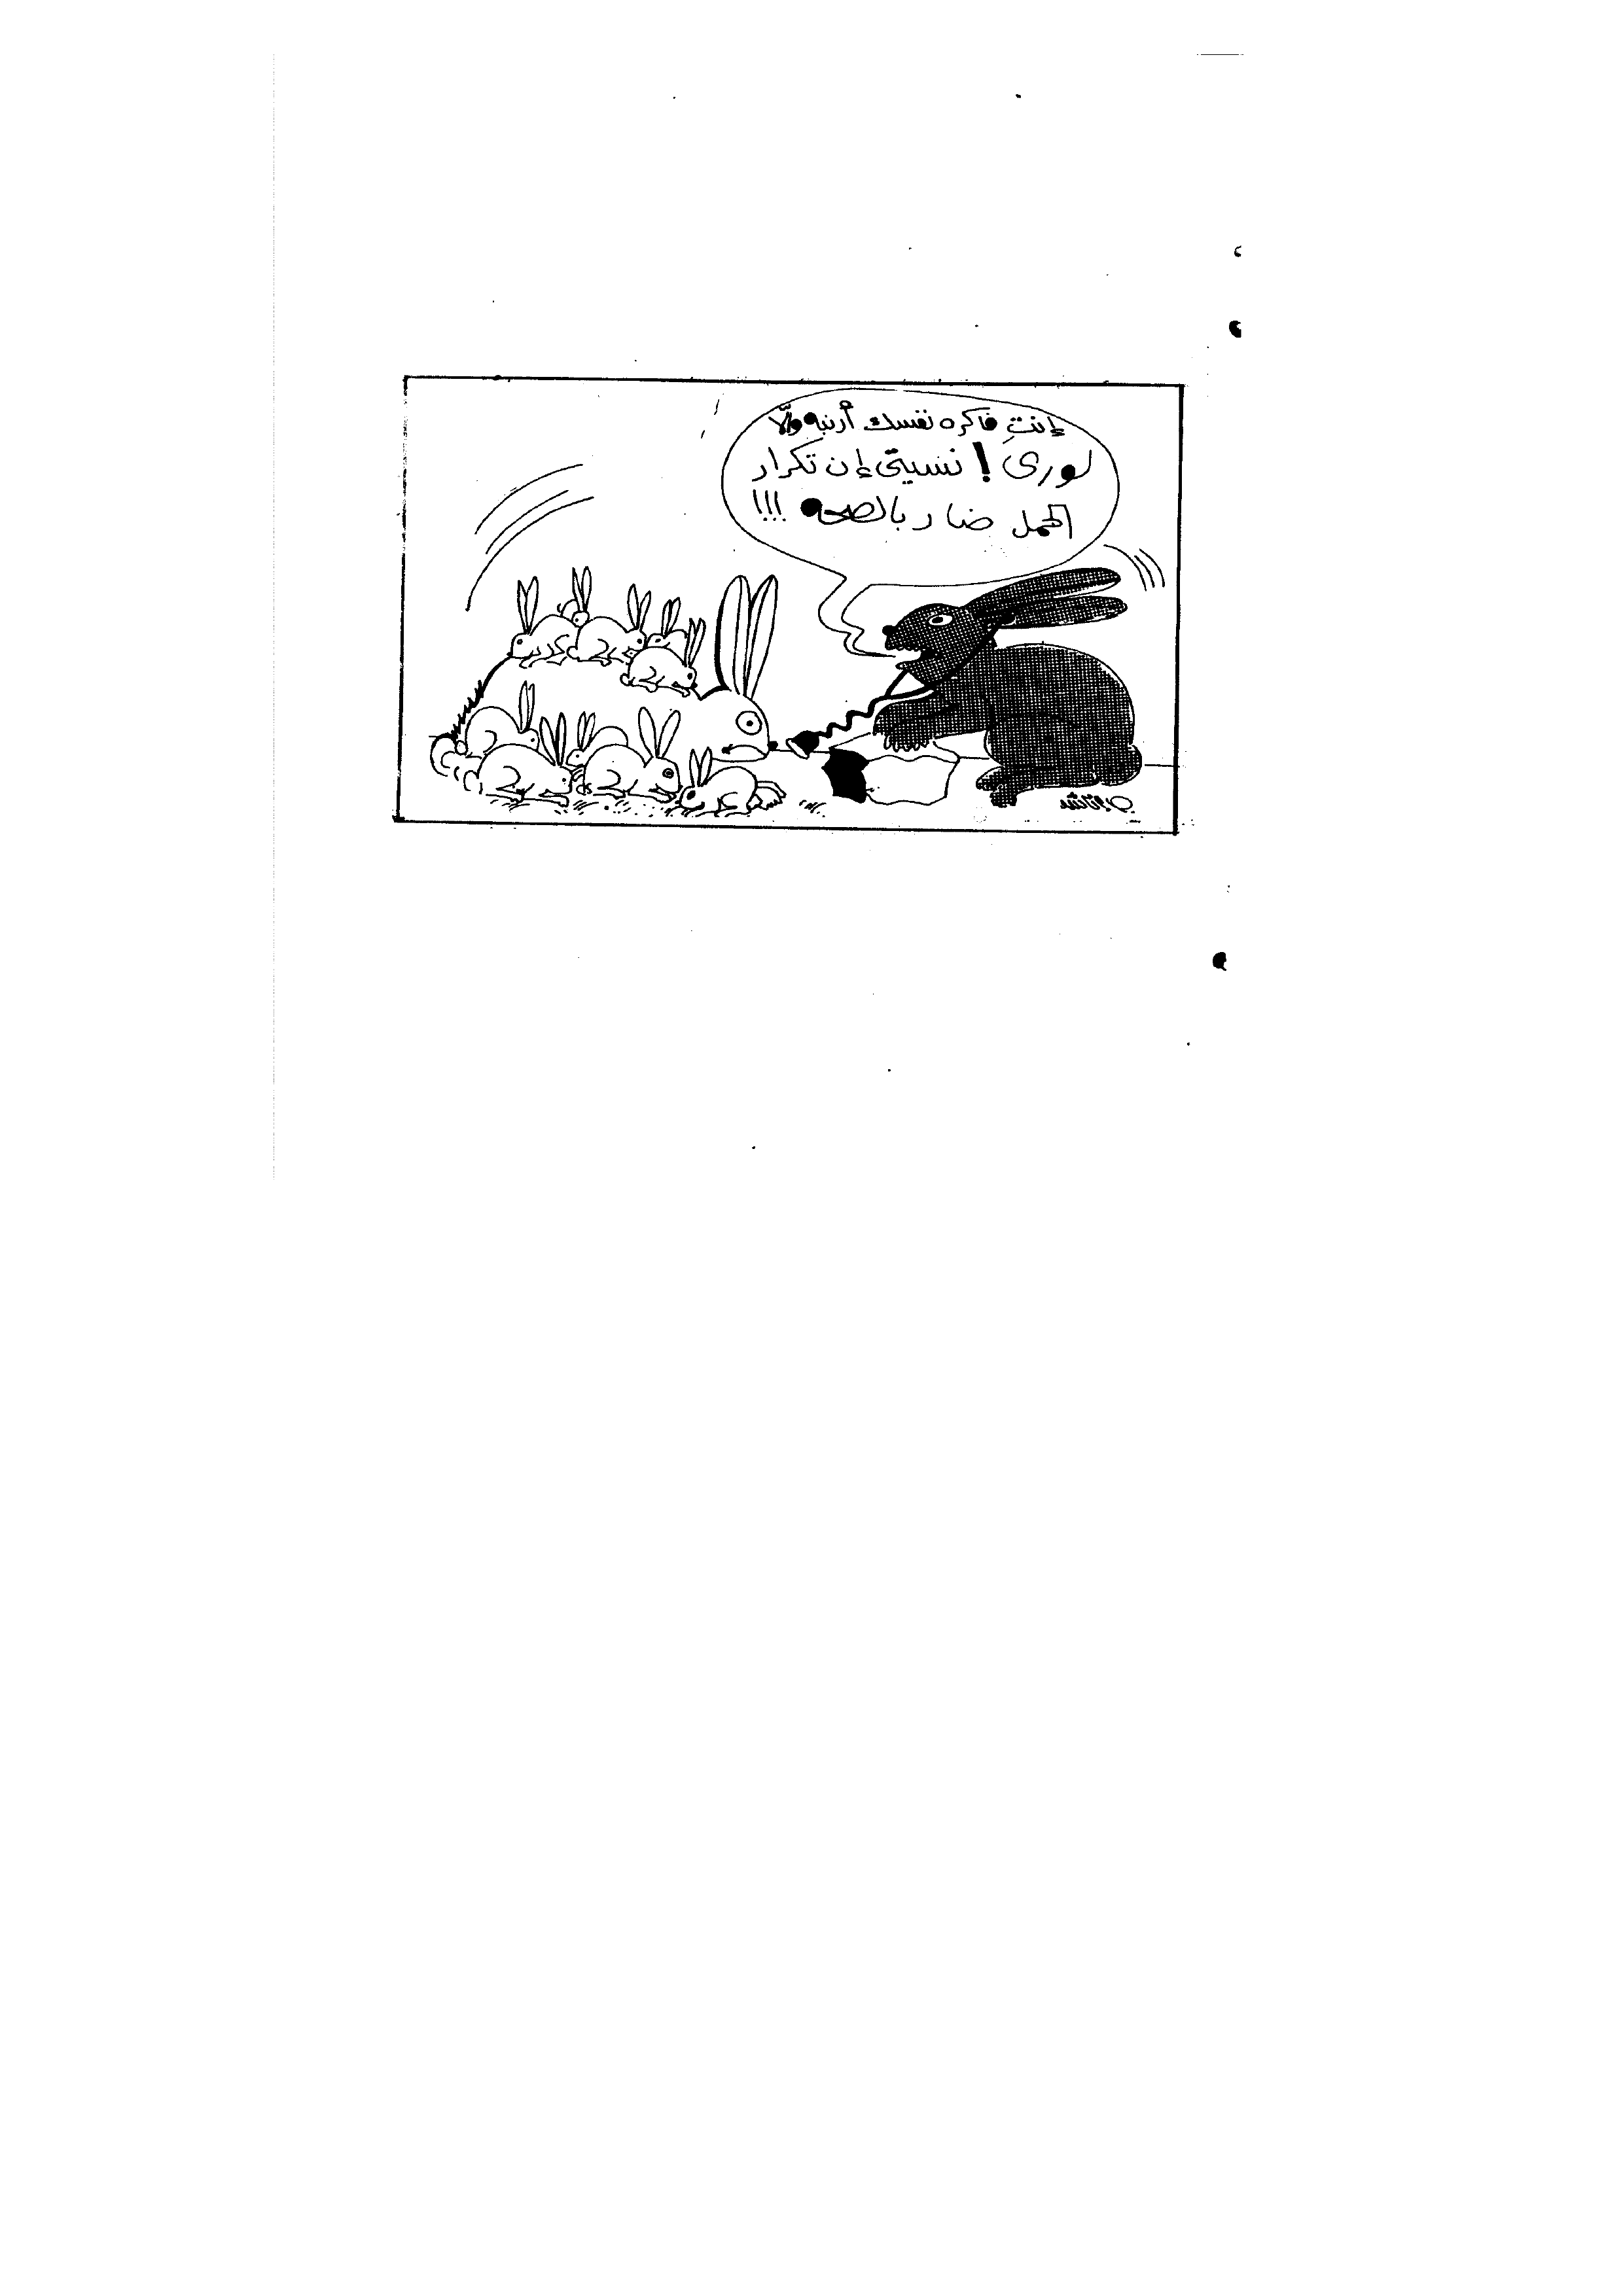 إنتِ فاكره نفسك أرنبه ولّا
لورى ! نسيتى إن تكرار
الحمل ضار بالصحه !!!